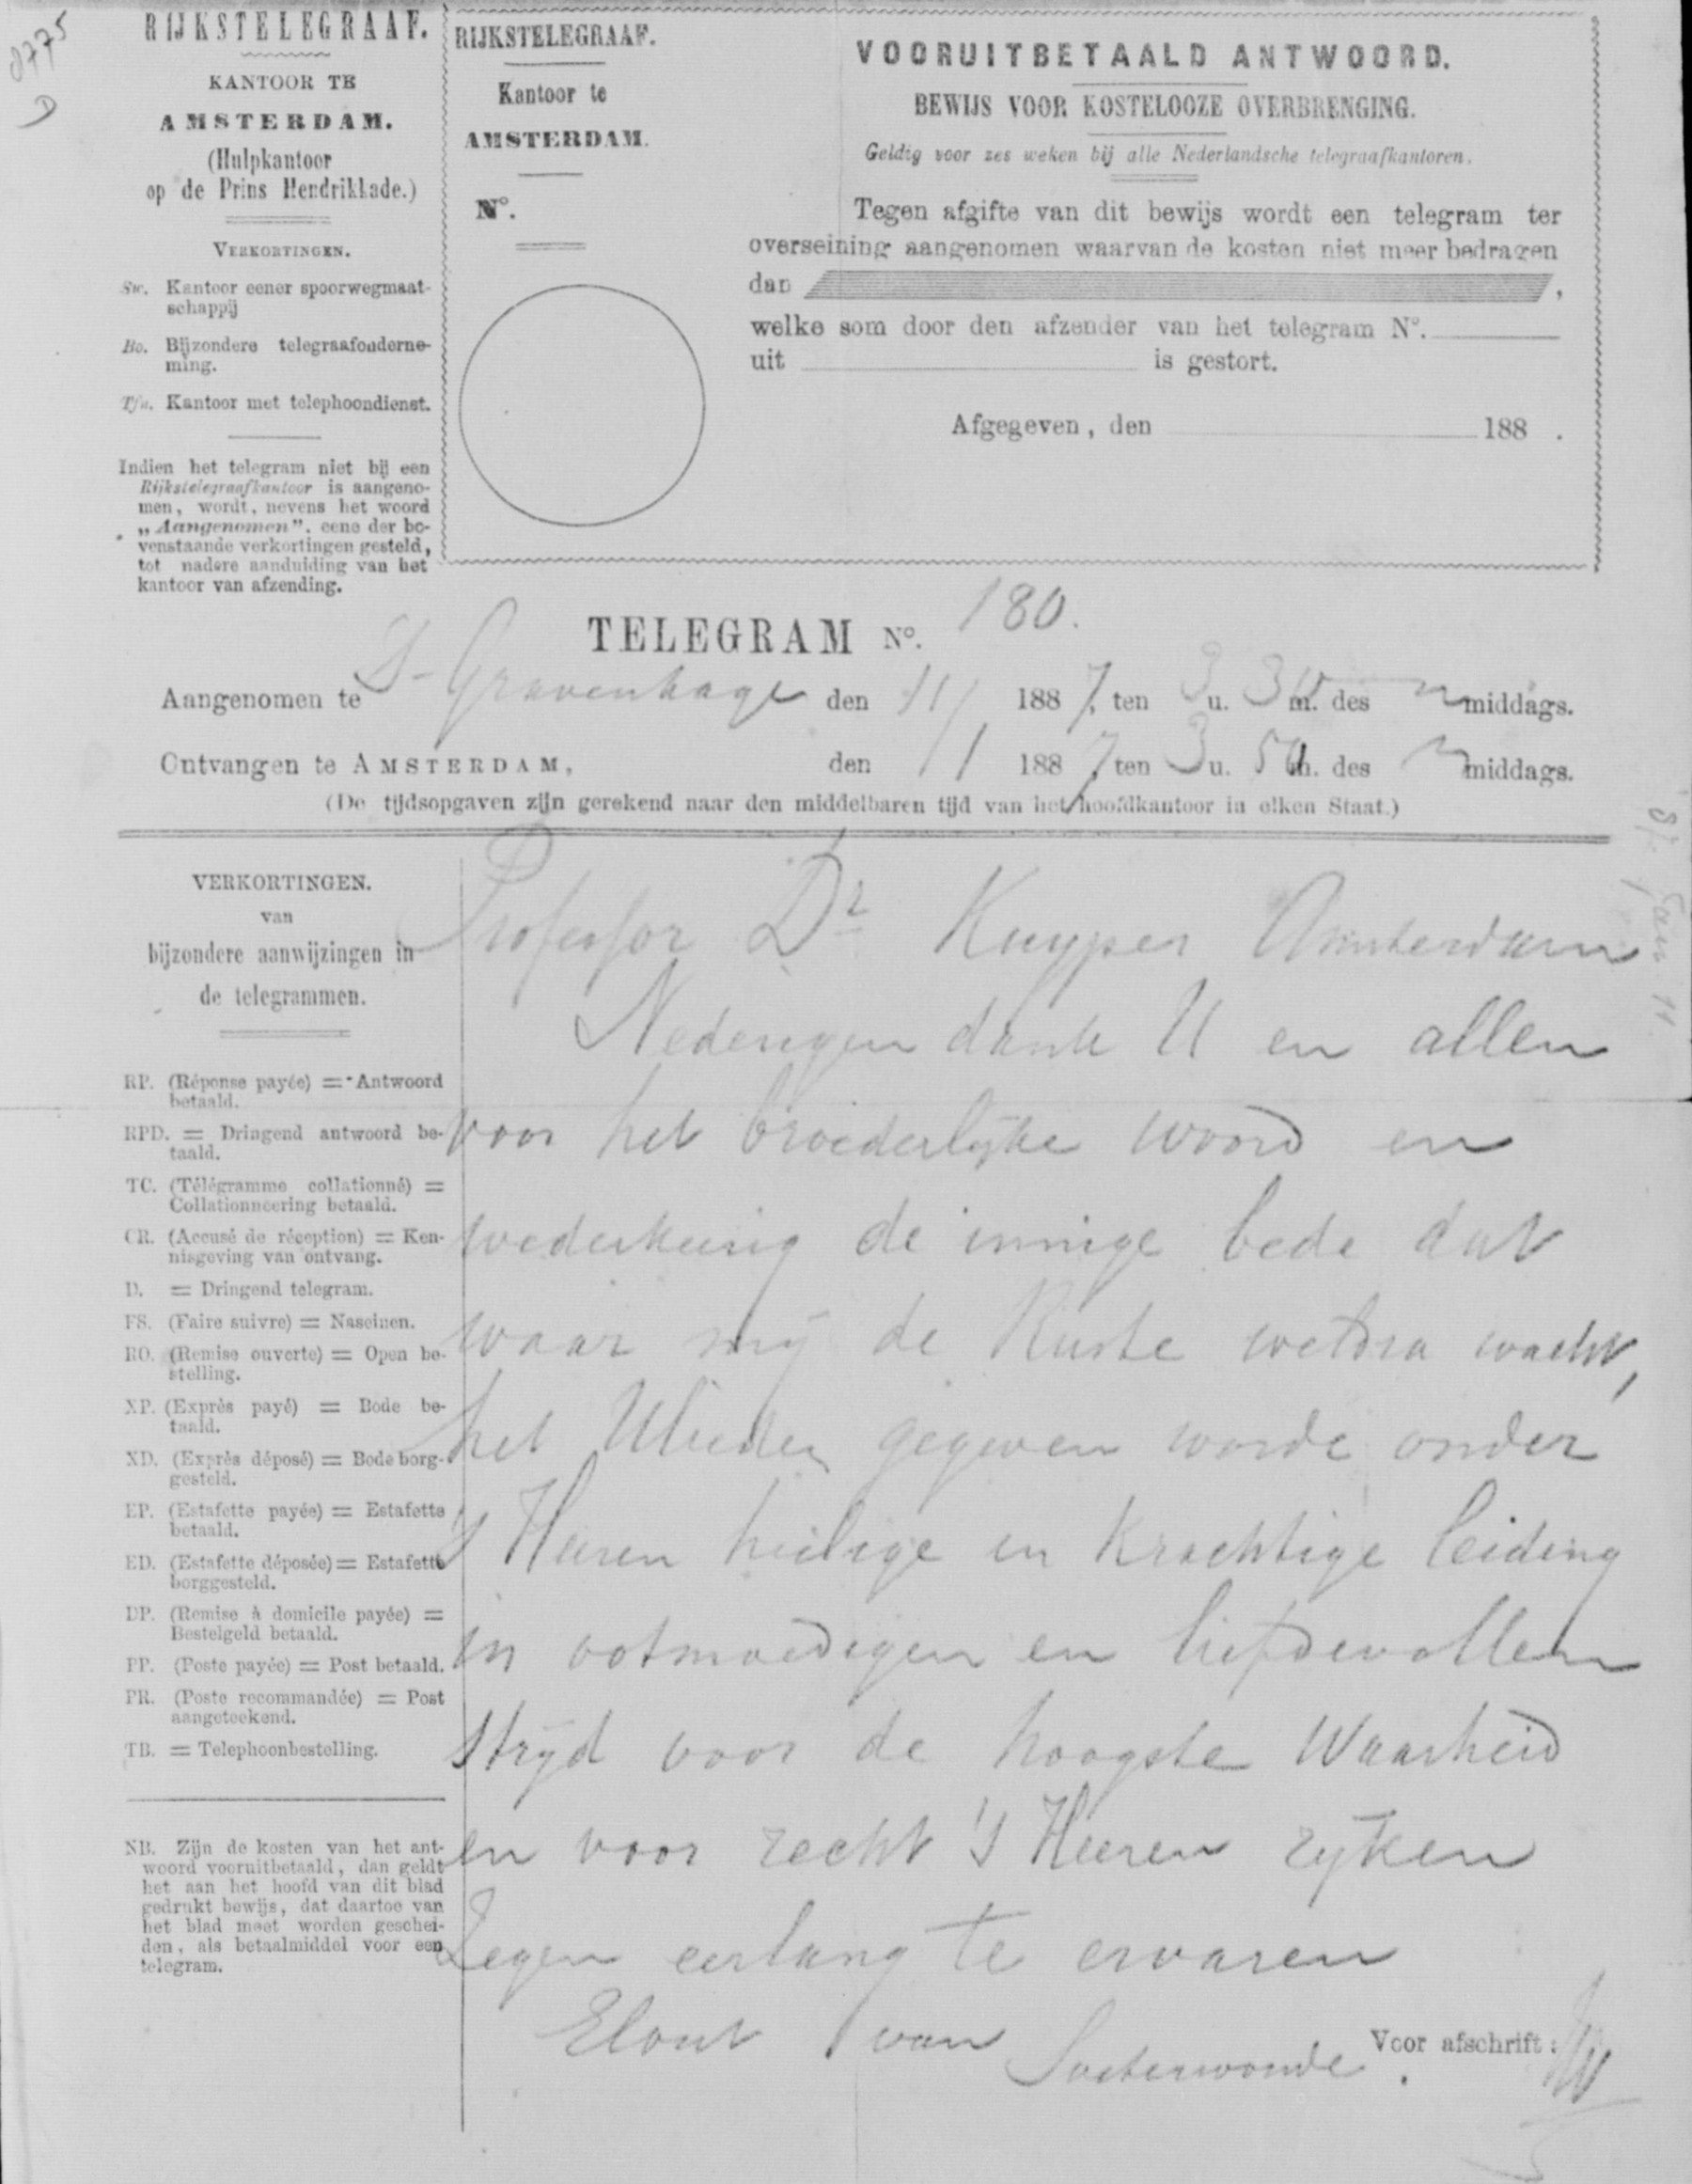 8775
D
RIJKSTELEGRAAF.
KANTOOR TE
AMSTERDAM.
(Hulpkantoor
op de Prins Hendrikkade.)
VERKORTINGEN.
Sw. Kantoor eener spoorwegmaat-
schappij
Bo. Bijzondere telegraafonderne-
ming.
Tfn. Kantoor met telephoondienst.
Indien het telegram niet bij een
Rijkstelegraafkantoor is aangeno-
men, wordt, nevens het woord
„Aangenomen". eene der bo-
venstaande verkortingen gesteld,
tot nadere aanduiding van het
kantoor van afzending.
RIJKSTELEGRAAF.
Kantoor te
AMSTERDAM.
No.
VOORUITBETAALD ANTWOORD.
BEWIJS VOOR KOSTELOOZE OVERBRENGING.
Geldig voor zes weken bij alle Nederlandsche telegraafkantoren.
Tegen afgifte van dit bewijs wordt een telegram ter
overseining aangenomen waarvan de kosten niet meer bedragen
dan ,
welke som door den afzender van het telegram No.
uit is gestort.
Afgegeven, den 188 .
TELEGRAM No. 180.
Aangenomen te S-Gravenhage den 11/1 1887, ten 3 u. 30 m. des n middags.
Ontvangen te AMSTERDAM, den 11/1 1887, ten 3 u. 50 m. des n middags.
(De tijdsopgaven zijn gerekend naar den middelbaren tijd van het hoofdkantoor in elken Staat.)
VERKORTINGEN.
van
bijzondere aanwijzingen in
de telegrammen.
RP. (Réponse payée) = Antwoord
betaald.
RPD. = Dringend antwoord be-
taald.
TC. (Télégramme collationné) =
Collationneering betaald.
CR. (Accusé de réception) = Ken-
nisgeving van ontvang.
D. = Dringend telegram.
FS. (Faire suivre) = Naseinen.
RO. (Remise ouverte) = Open be-
stelling.
XP. (Exprès payé) = Bode be-
taald.
XD. (Exprès déposé) = Bode borg-
gesteld.
EP. (Estafette payée) = Estafette
betaald.
ED. (Estafette déposée) = Estafette
borggesteld.
DP. (Remise à domicile payée) =
Bestelgeld betaald.
PP. (Poste payée) = Post betaald.
PR. (Poste recommandée) = Post
aangeteekend.
TB. = Telephoonbestelling.
NB. Zijn de kosten van het ant-
woord vooruitbetaald, dan geldt
het aan het hoofd van dit blad
gedrukt bewijs, dat daartoe van
het blad moet worden geschei-
den, als betaalmiddel voor een
telegram.
Professor Dr Kuyper Amsterdam
Nederigen dank U en allen
voor het broederlijke woord en
wederkeerig de innige bede dat
waar mij de Ruste weldra wacht,
het Ulieden gegeven worde onder
's Heeren heilige en krachtige leiding
in ootmoedigen en liefdevollen
strijd voor de hoogste Waarheid
en voor recht 's Heeren rijken
Zegen eerlang te ervaren
Elout van Soeterwoude.
Voor afschrift:
'87 Jan 11